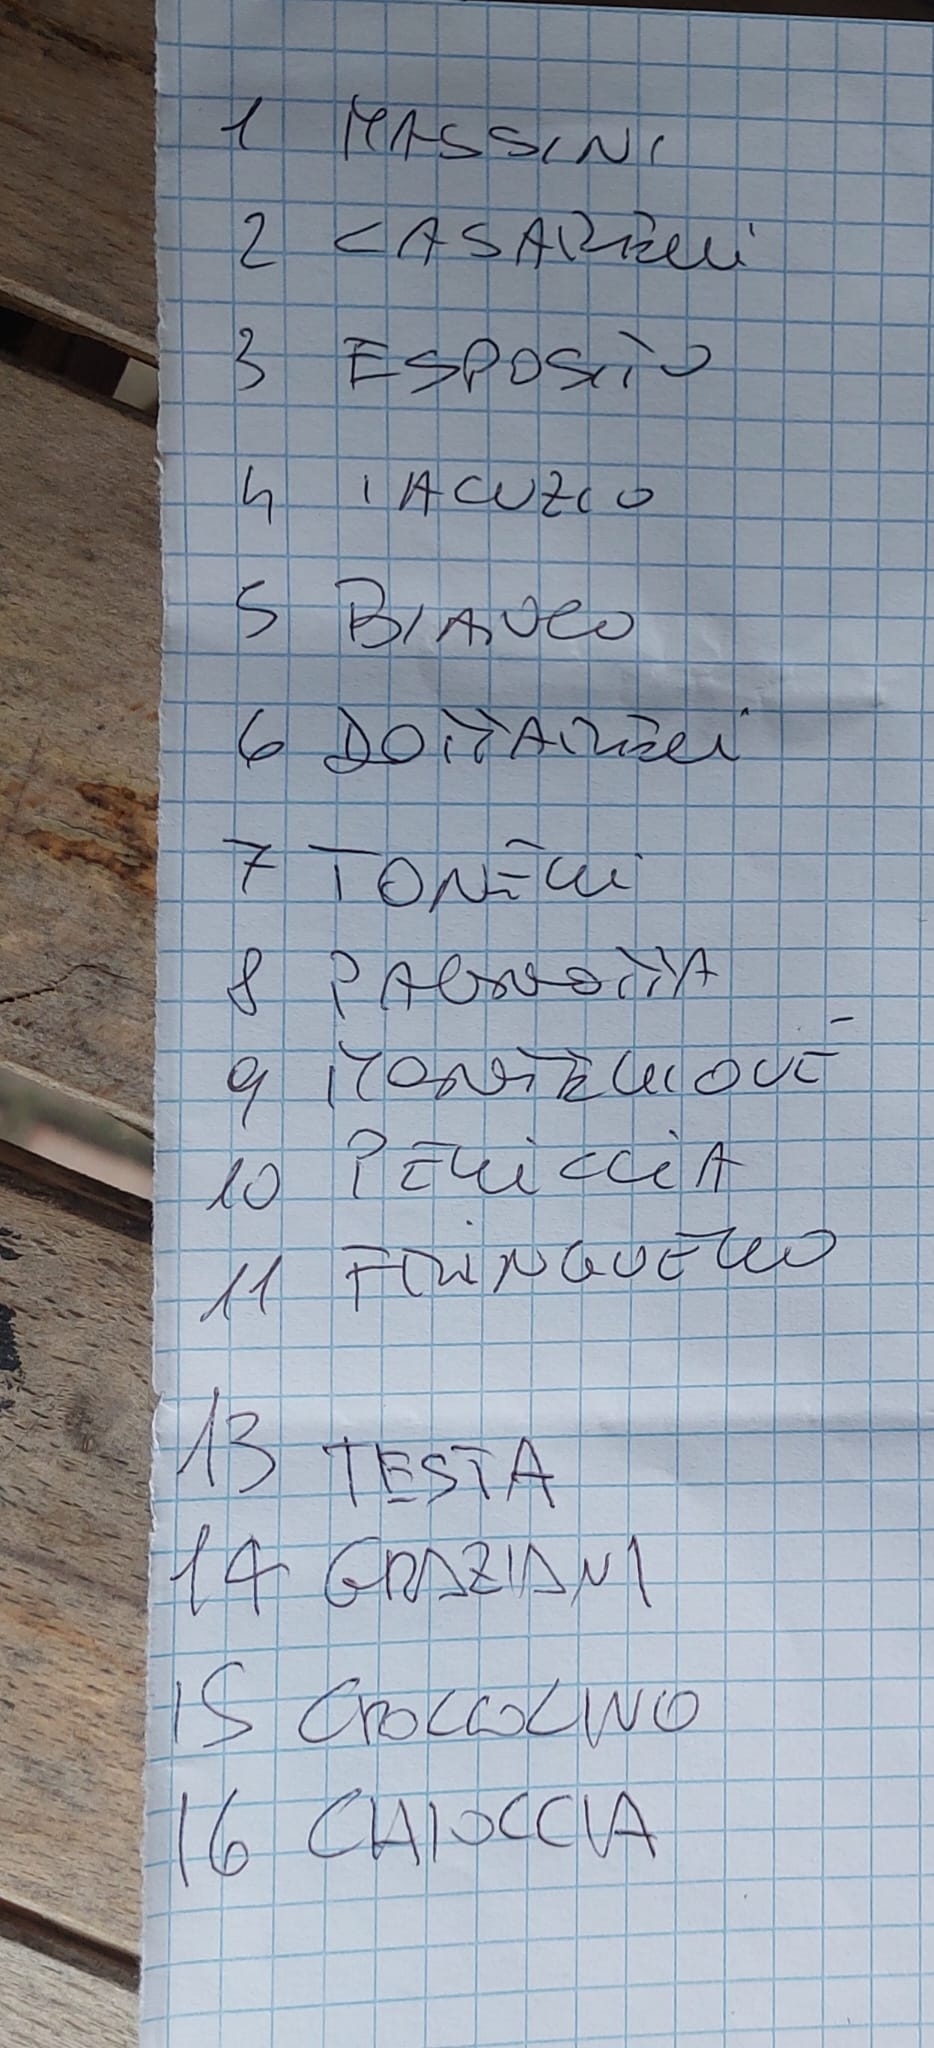 1 MASSINI
2 CASARELLI
3 ESPOSITO
4 IACUZIO
5 BIANCO
6 DOTTARELLI
7 TONELLI
8 PAGNOTTA
9 MONTELLOVE
10 PELLICCIA
11 FRINGUELLO
13 TESTA
14 GRAZIANI
15 CROCCOLINO
16 CHIOCCIA